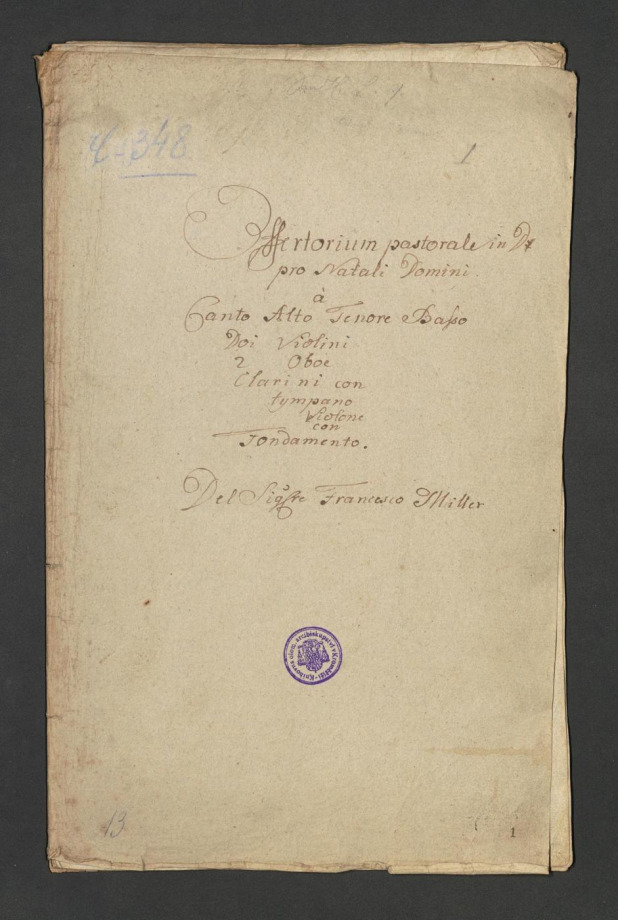 348
1
Offertorium pastorale in D#
pro Natali Domini.
à
Canto Alto Tenore Basso
Doi Violini
2 Oboe
Clarini con
tympano
Violone
con
Fondamento.
Del Sigre Francesco Miller
Knihovna olom. arcibiskupství v Kroměříži
13
1